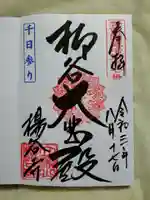 奉拝
令和三年
八月十七日
柳谷
大悲殿
楊谷寺
千日参り